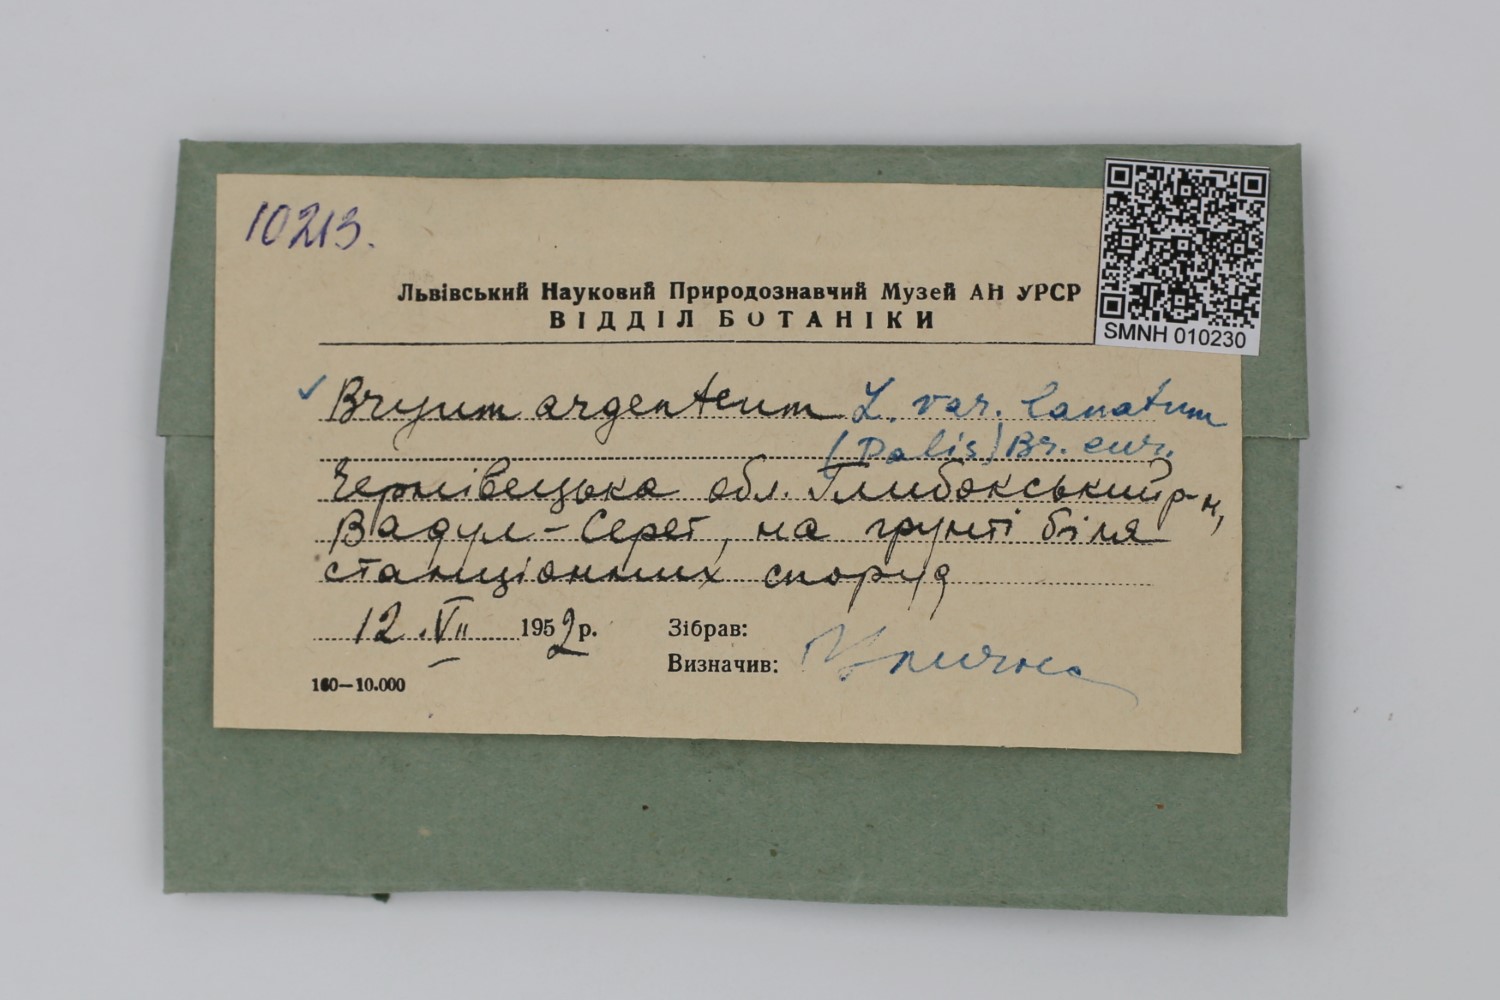 10213.
Львівський Науковий Природознавчий Музей АН УРСР
ВІДДІЛ БОТАНІКИ
SMNH 010230
✓ Bryum argenteum L. var. lanatum
(Palis) Br. eur.
Чернівецька обл. Глибокський р-н,
Вадул-Серет, на грунті біля
станціонних споруд
12.VII 1952р.
Зібрав:
Визначив:
160—10.000